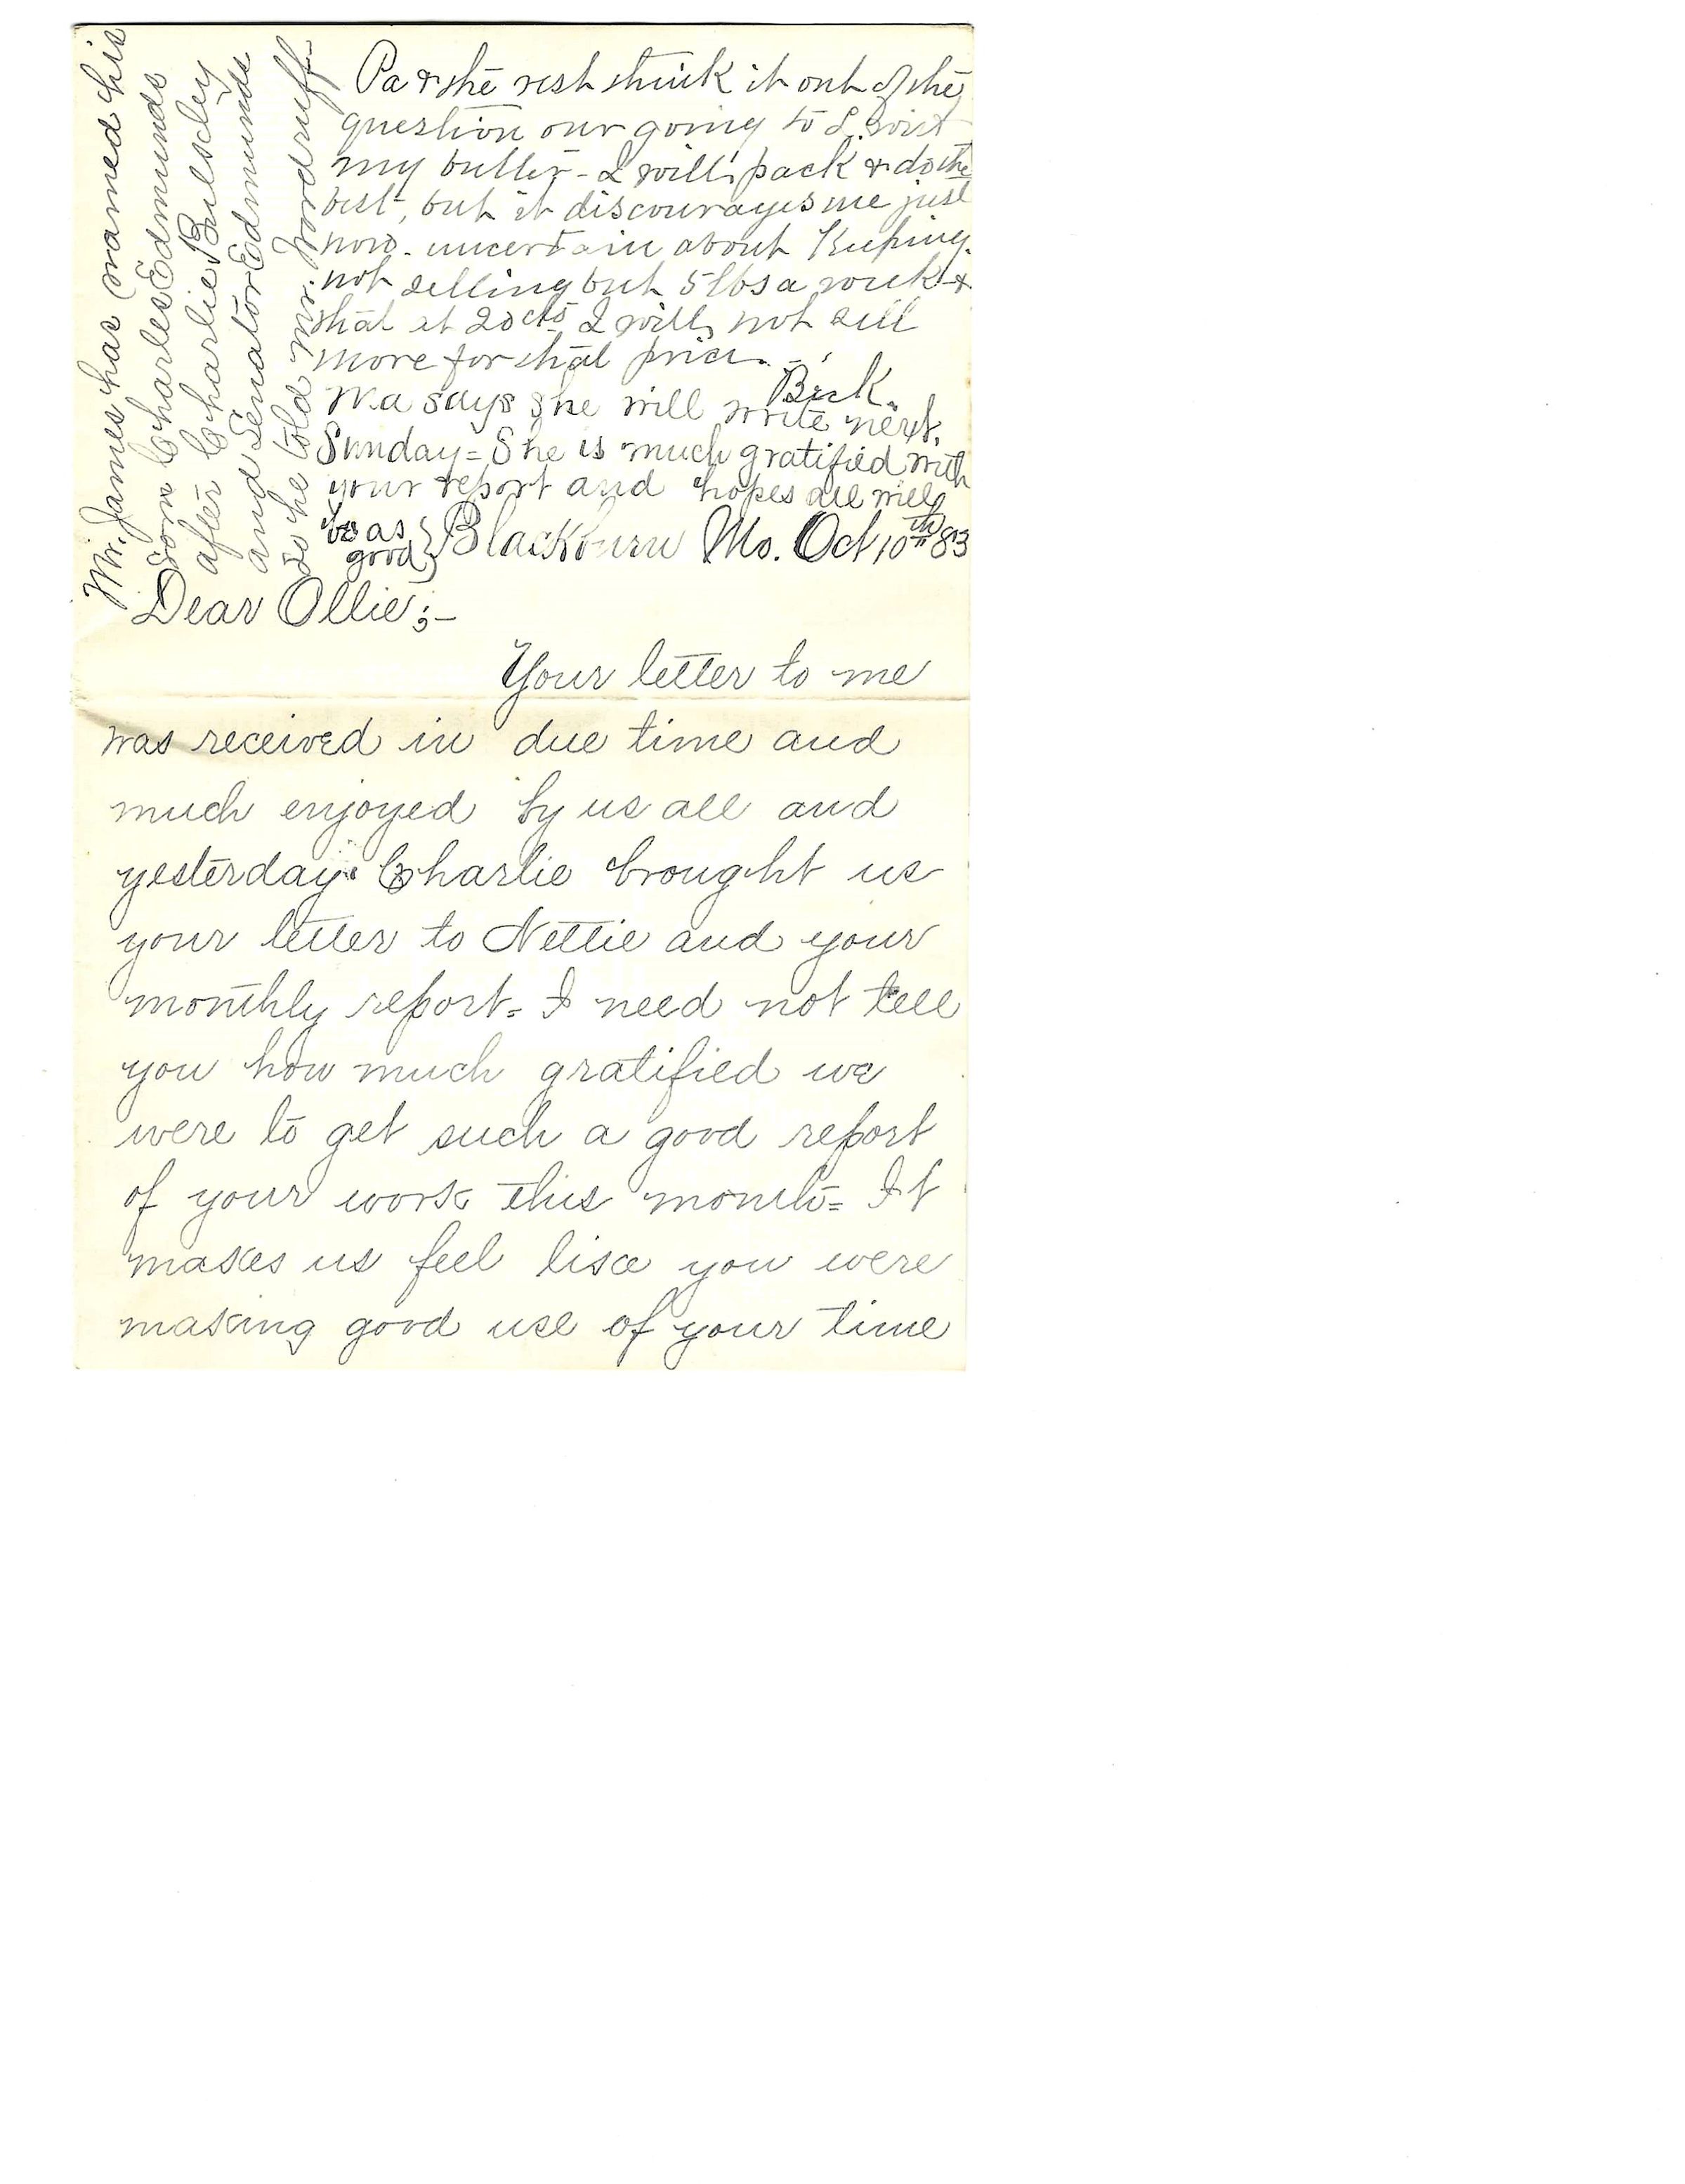 Pa & the rest think it out of the
question our going to L. with
my butter - I will pack & do the
best, but it discourages me just
now. uncertain about keeping.
not selling but 5 lbs a week &
that at 20 cts I will not sell
more for that price. -
Beck.
Ma says she will write next
Sunday = She is much gratified with
your report and hopes all will
be as
good
Mr. James has named his
son Charles Edmunds
after Charlie
and Senator Edmunds
so he told Mr. Woodruff
Blackburn Mo. Oct 10th 83
Dear Ollie;-
Your letter to me
was received in due time and
much enjoyed by us all and
yesterday Charlie brought us
your letter to Nettie and your
monthly report = I need not tell
you how much gratified we
were to get such a good report
of your work this month = It
makes us feel like you were
making good use of your time